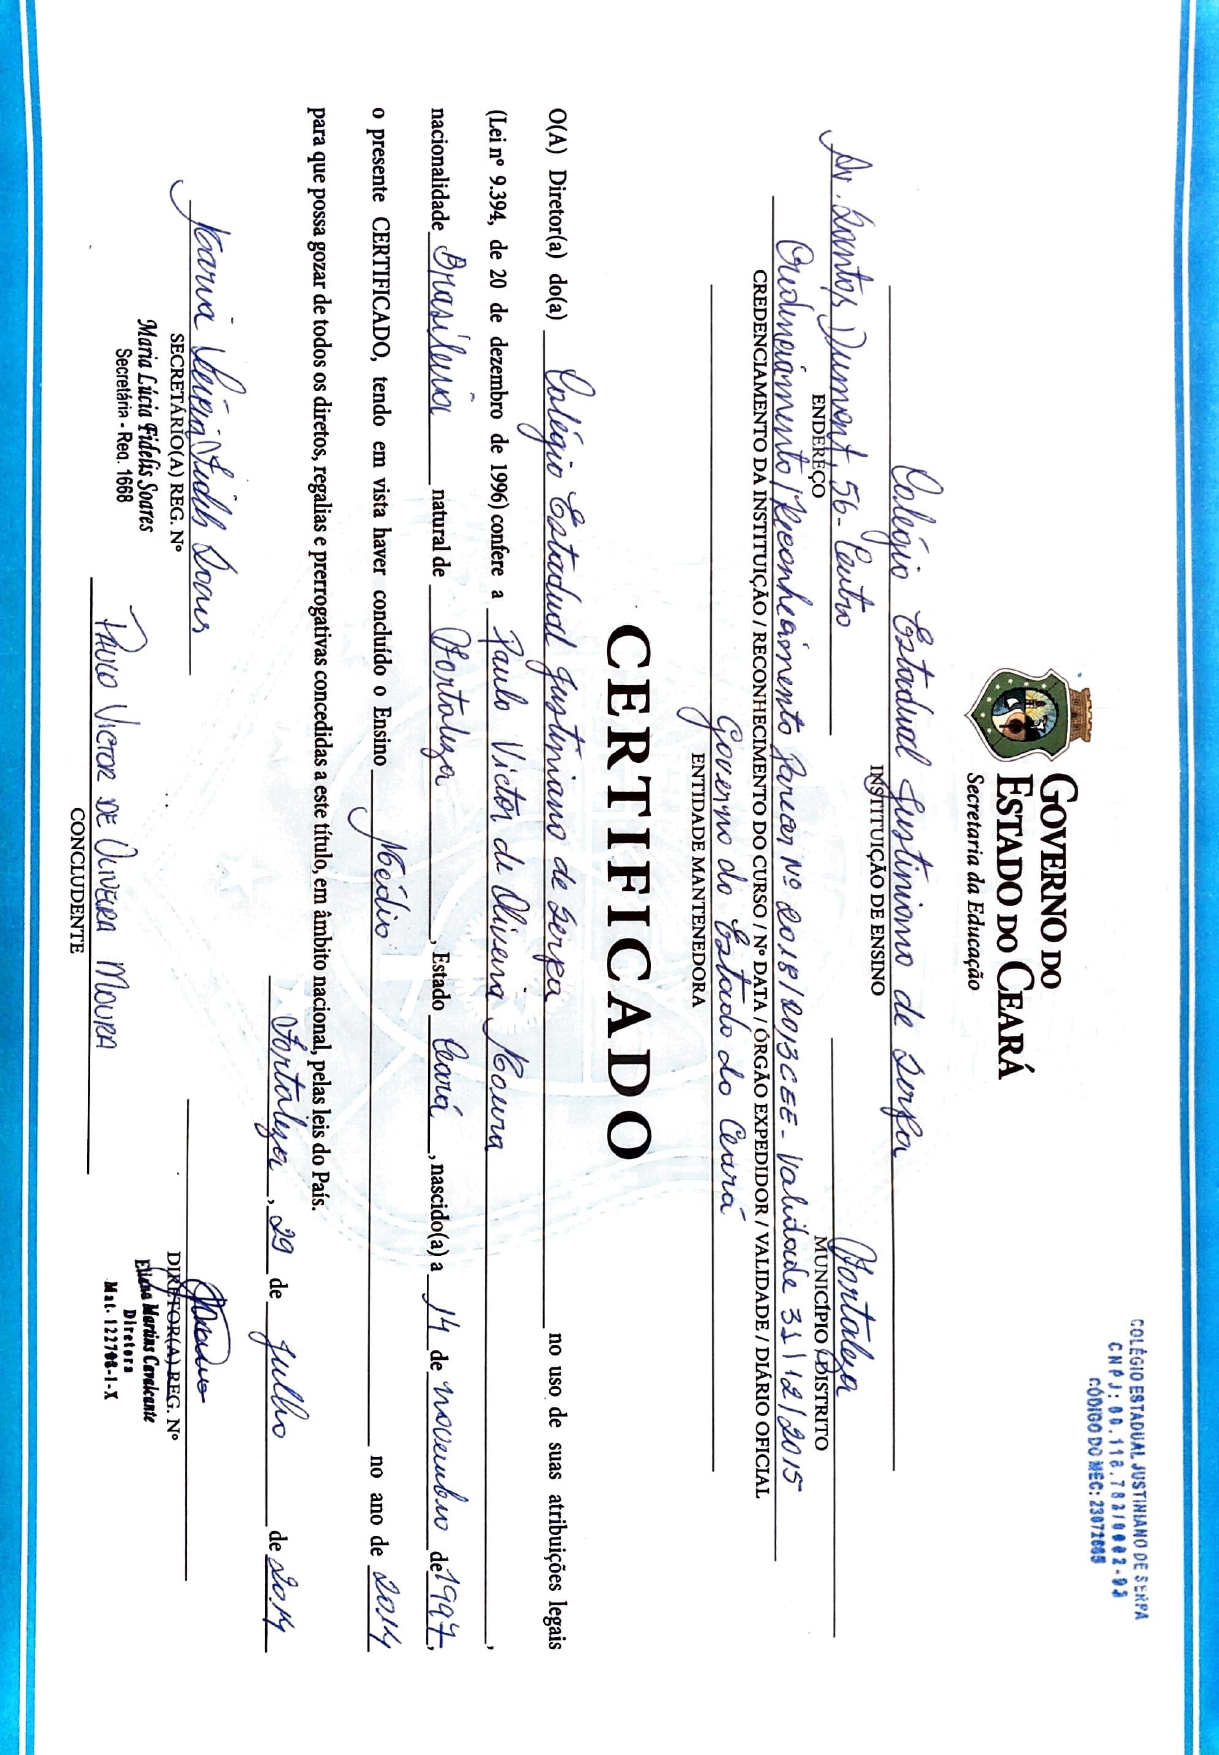 COLÉGIO ESTADUAL JUSTINIANO DE SERPA
CNPJ: 00.118.783/0002-
CÓDIGO DO MEC:
GOVERNO DO
ESTADO DO CEARÁ
Secretaria da Educação
Colégio Estadual Justiniano de Serpa
INSTITUIÇÃO DE ENSINO
Av. Santos Dumont, 56 - Centro Fortaleza
ENDEREÇO MUNICÍPIO / DISTRITO
Credenciamento / Reconhecimento Parecer Nº 2018/2013CEE - Validade 31/12/2015
CREDENCIAMENTO DA INSTITUIÇÃO / RECONHECIMENTO DO CURSO / Nº DATA / ÓRGÃO EXPEDIDOR / VALIDADE / DIÁRIO OFICIAL
Governo do Estado do Ceará
ENTIDADE MANTENEDORA
CERTIFICADO
O(A) Diretor(a) do(a) Colégio Estadual Justiniano de Serpa no uso de suas atribuições legais
(Lei nº 9.394, de 20 de dezembro de 1996) confere a Paulo Victor de Oliveira Moura,
nacionalidade Brasileira natural de Fortaleza, Estado Ceará, nascido(a) a 14 de novembro de 1997,
o presente CERTIFICADO, tendo em vista haver concluído o Ensino Médio no ano de 2014
para que possa gozar de todos os diretos, regalias e prerrogativas concedidas a este título, em âmbito nacional, pelas leis do País.
Fortaleza, 29 de Julho de 2014
Maria Lúcia Fidelis Soares
SECRETÁRIO(A) REG. Nº
Maria Lúcia Fidelis Soares
Secretária - Reg. 1668
DIRETOR(A) REG. Nº
Martins Cavalcante
Diretora
Mat. 122798-1-X
PAULO VICTOR DE OLIVEIRA MOURA
CONCLUDENTE